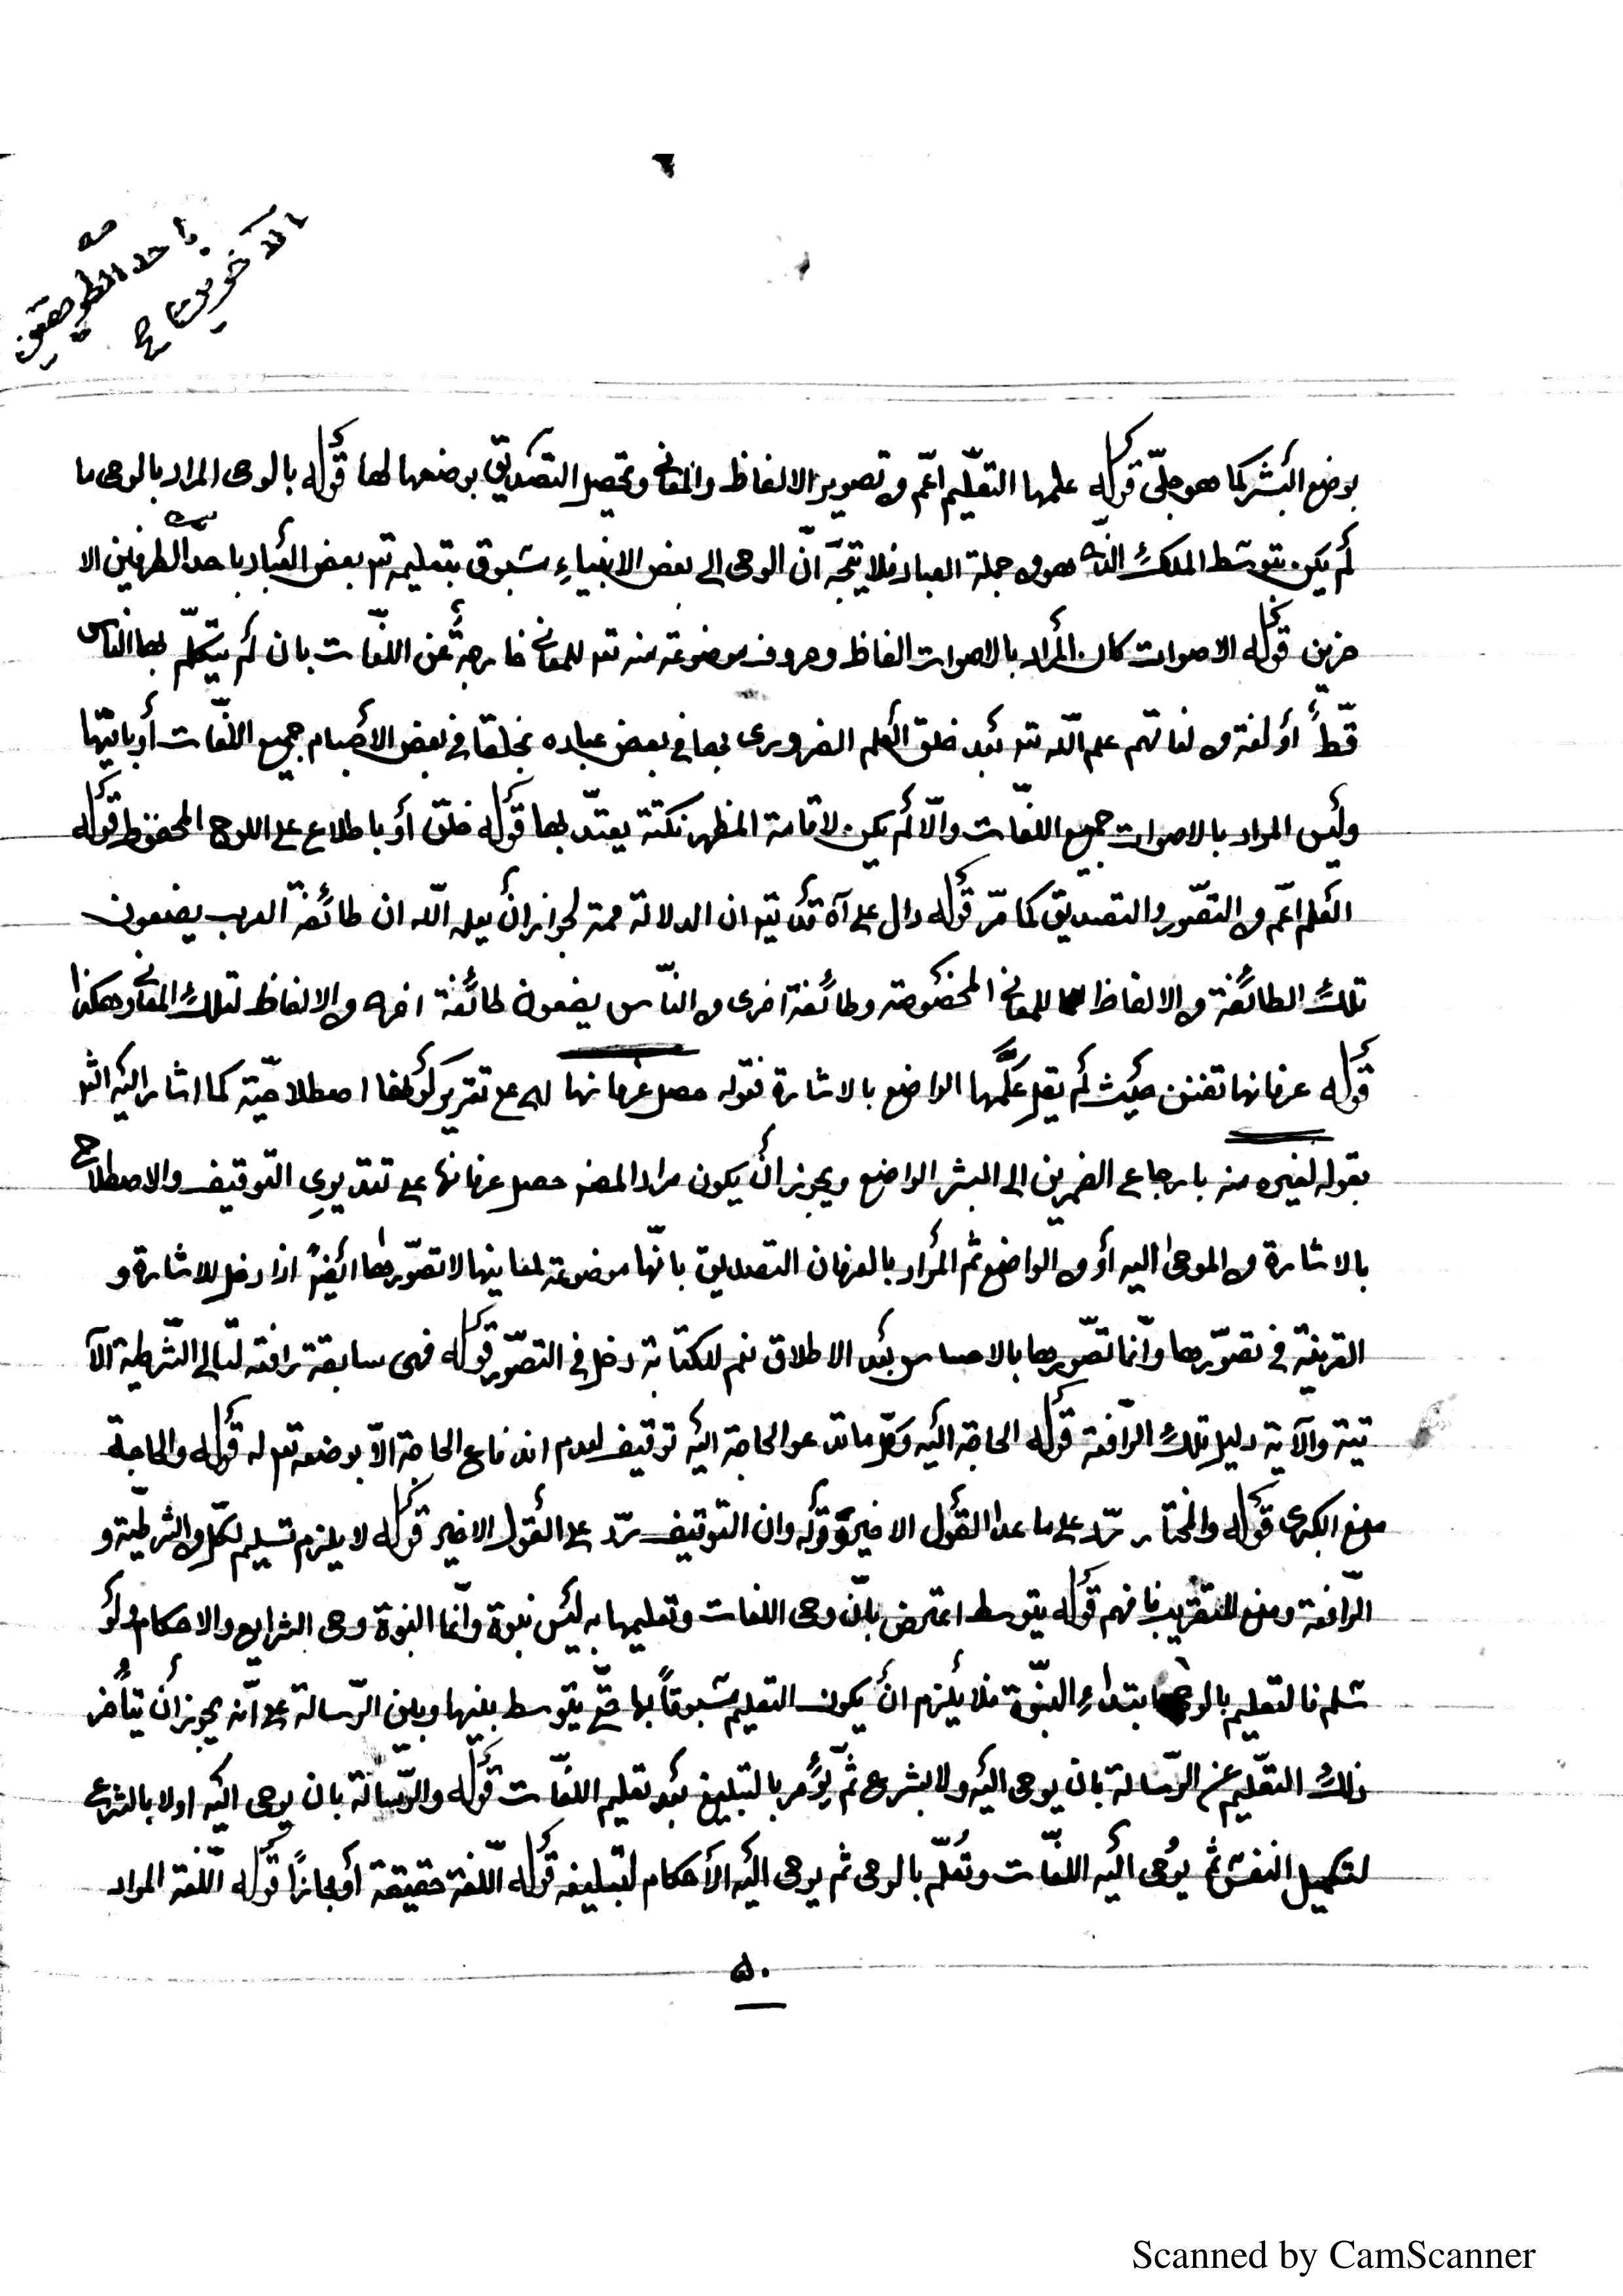 باحد الطريقين
الآخرين صح
بوضع البشر كما هو جليّ قوله علمها التعليم اعّم من تصوير الالفاظ والمعاني وتحصيل التصديق بوضعها لها قوله بالوحى المراد بالوحى ما
لم يكن بتوسّط الملك الذي هو من جملة العباد فلا يتجّه انّ الوحى الى بعض الانبياء مسبوق بتعليمه تع بعض العباد باحد الطرفين الا
خرين قوله الاصوات كان المراد بالاصوات الفاظ وحروف موضوعة منه تع للمعاني خارجة عن اللغّات بان لم يتكلّم بها الناس
قّط أو لغة من لغاتهم علم الله تع بعد خلق العلم الضرورى بها في بعض عباده بخلقها في بعض الأجسام جميع اللغّات أو باقيها
وليس المراد بالاصوات جميع اللغّات والّا لم يكن لاقامة المظهر نكتة يعتدّ بها قوله خلق أو باطلاع على اللوح المحفوظ قوله
العلم اعّم من التصّور والتصديق كما مّر قوله دال على آه قد يتع ان الدلالة ممة لجواز أن يعلم الله ان طائفة العرب يضعون
تلك الطائفة من الالفاظ للمعاني المخصوصة وطائفة اخرى من الناّس يضعون طائفة اخرى من الالفاظ لتلك المعاني وهكذا
قوله عرفانها تفنن حيث لم يقل علّمها الواضع بالاشارة فقوله حصل عرفانها اى على تقرير كونها اصطلاحيّة كما اشار اليه الش
بقوله لغيره منه بارجاع الضميرين الى البشر الواضع ويجوز أن يكون مراد المصنف حصل عرفانها على تقديرى التوقيف والاصطلاح
بالاشارة من الموحى اليه أو من الواضع ثم المراد بالعرفان التصديق بانّها موضوعة لمعانيها لا تصّورها ايضاً اذ لا دخل للاشارة و
القرينة في تصوّرها وانّما تصّورها بالاحساس بعد الاطلاق نعم للكتابة دخل في التصّور قوله فهى سابقة رافعة لتالي الشّرطية الآ
تية والآية دليل تلك الرّافعة قوله الحاجة اليه وكلّ ما تدعو الحاجة اليه توقيف لعدم اندفاع الحاجة الاّ بوضعه تع له قوله والحاجة
منع الكبرى قوله والمختار ردّ على ما عدا القول الاخير وقوله وان التوقيف ردّ على القول الاخير قوله لا يلزم تسليم لكلّ من الشرطيّة و
الرّافعة ومنع للتقريب فافهم قوله يتوسط اعترض بانّ وحى اللغات وتعليمها به ليس نبوة وانّما النبوة وحى الشرايع والاحكام ولو
سلم فالتعليم بالوحى ابتداء النبوّة فلا يلزم أن يكون التعليم مسبوقاً بها حتّى يتوسط بينها وبين الرّسالة على انّه يجوز أن يتأخر
ذلك التعّليم عن الرّسالة بان يوحى اليه ولا بشرع ثمّ يؤمر بالتبليغ بعد تعليم اللغّات قوله والرّسالة بان يوحى اليه اولا بالشرع
لتكميل النفس ثم يوحى اليه اللغّات وتُعلّم بالوحى ثم يوحى اليه الأحكام لتبليغه قوله اللّغة حقيقة أو مجازاً قوله اللّغة المراد
٥٠
Scanned by CamScanner